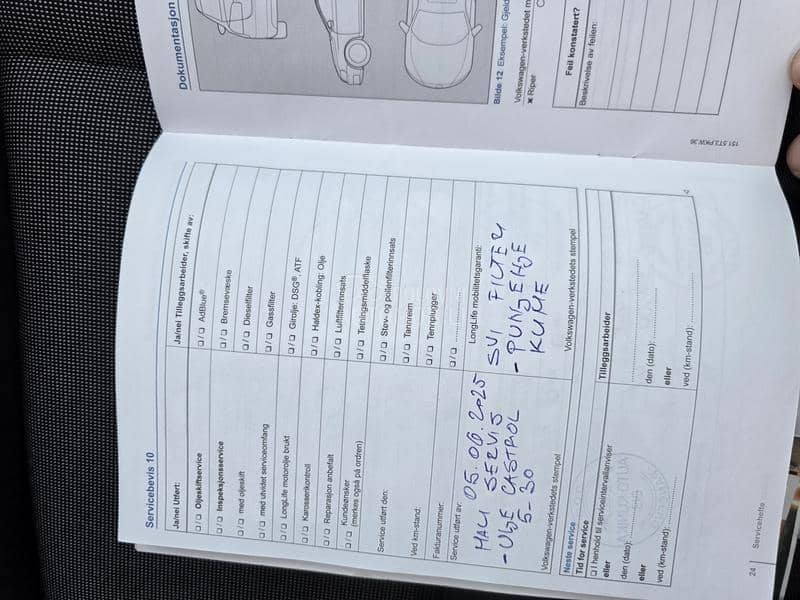 Servicebevis 10
Ja/nei Utført:
❏/❏ Oljeskiftservice
❏/❏ Inspeksjonsservice
❏/❏ med oljeskift
❏/❏ med utvidet serviceomfang
❏/❏ LongLife motorolje brukt
❏/❏ Karosserikontroll
❏/❏ Reparasjon anbefalt
❏/❏ Kundeønsker
(merkes også på ordren)
Service utført den:
Ved km-stand:
Fakturanummer:
Service utført av:
MALI 05.06.2025
SERVIS
- ULJE CASTROL
5-30
Volkswagen-verkstedets stempel
Ja/nei Tilleggsarbeider, skifte av:
❏/❏ AdBlue®
❏/❏ Bremsevæske
❏/❏ Dieselfilter
❏/❏ Gassfilter
❏/❏ Girolje: DSG®, ATF
❏/❏ Haldex-kobling: Olje
❏/❏ Luftfilterinnsats
❏/❏ Tetningsmiddelflaske
❏/❏ Støv- og pollenfilterinnsats
❏/❏ Tannreim
❏/❏ Tennplugger
❏/❏ ....................
LongLife mobilitetsgaranti:
SVI FILTERI
- PUNJENJE
KLIME
Volkswagen-verkstedets stempel
Neste service
Tid for service
❏ I henhold til serviceintervallanviser
eller
den (dato):
eller
ved (km-stand):
Tilleggsarbeider
den (dato):
eller
ved (km-stand):
24 Servicehefte
Dokumentasjon
Bilde 12 Eksempel:
Volkswagen-verkstedet
✖ Riper
Feil konstatert?
Beskrivelse av feilen:
151.5T3.PKW.36